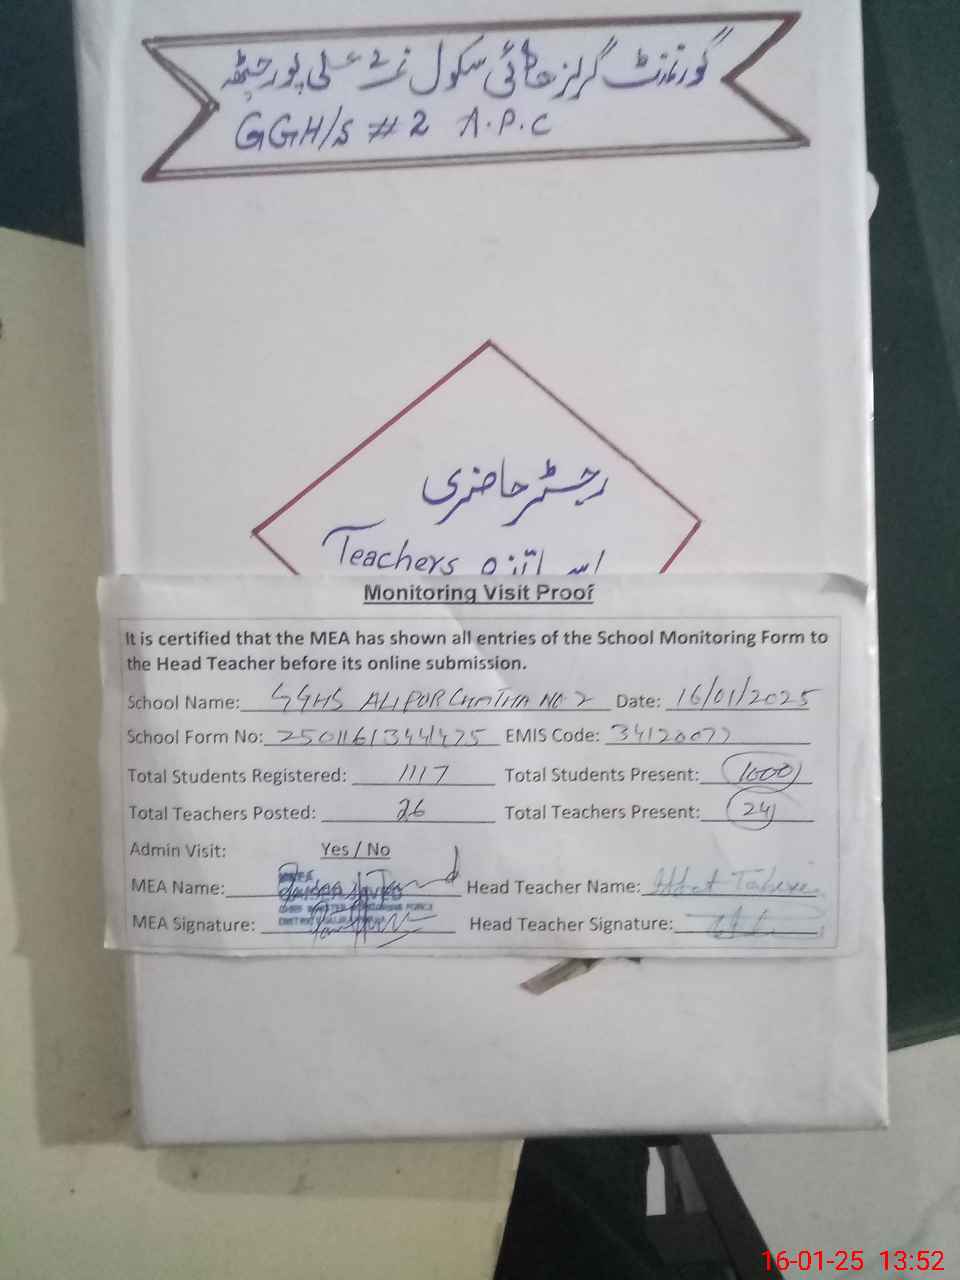 گورنمنٹ گرلز ہائی سکول نمبر 2 علی پور چٹھہ
GGH/S #2 A.P.C
رجسٹر حاضری
Teachers اساتذہ
Monitoring Visit Proof
It is certified that the MEA has shown all entries of the School Monitoring Form to
the Head Teacher before its online submission.
School Name: GGHS ALIPUR CHATTHA NO 2 Date: 16/01/2025
School Form No: 25011613441475 EMIS Code: 34120077
Total Students Registered: 1117 Total Students Present: 1000
Total Teachers Posted: 26 Total Teachers Present: 24
Admin Visit: Yes / No
MEA Name: Head Teacher Name: Tahira
MEA Signature: Head Teacher Signature:
16-01-25 13:52